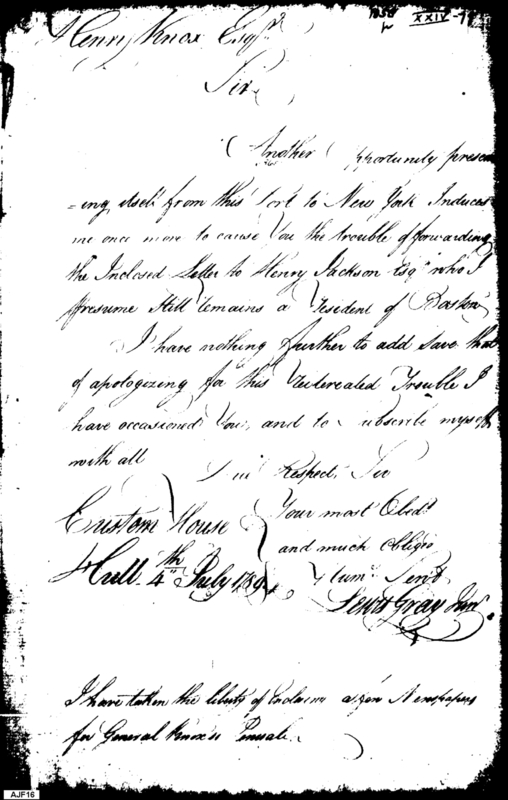 Henry Knox Esqr.
XXIV-
Sir
Another opportunity presen
=ing itself from this Port to New York Induces
me once more to cause You the trouble of forwarding
the Inclosed Letter to Henry Jackson Esqr who I
presume still remains a resident of Boston
I have nothing further to add save that
of apologizing for this reiterated Trouble I
have occasioned You, and to subscribe myself
with all Due Respect, Sir
Your most Obedt
and much Obliged
Humle Servt
Custom House
Hull 4th July 1789
Lewis Gray Junr
I have taken the liberty of Enclosing a few Newspapers
for General Knox's Perusal.
AJF16